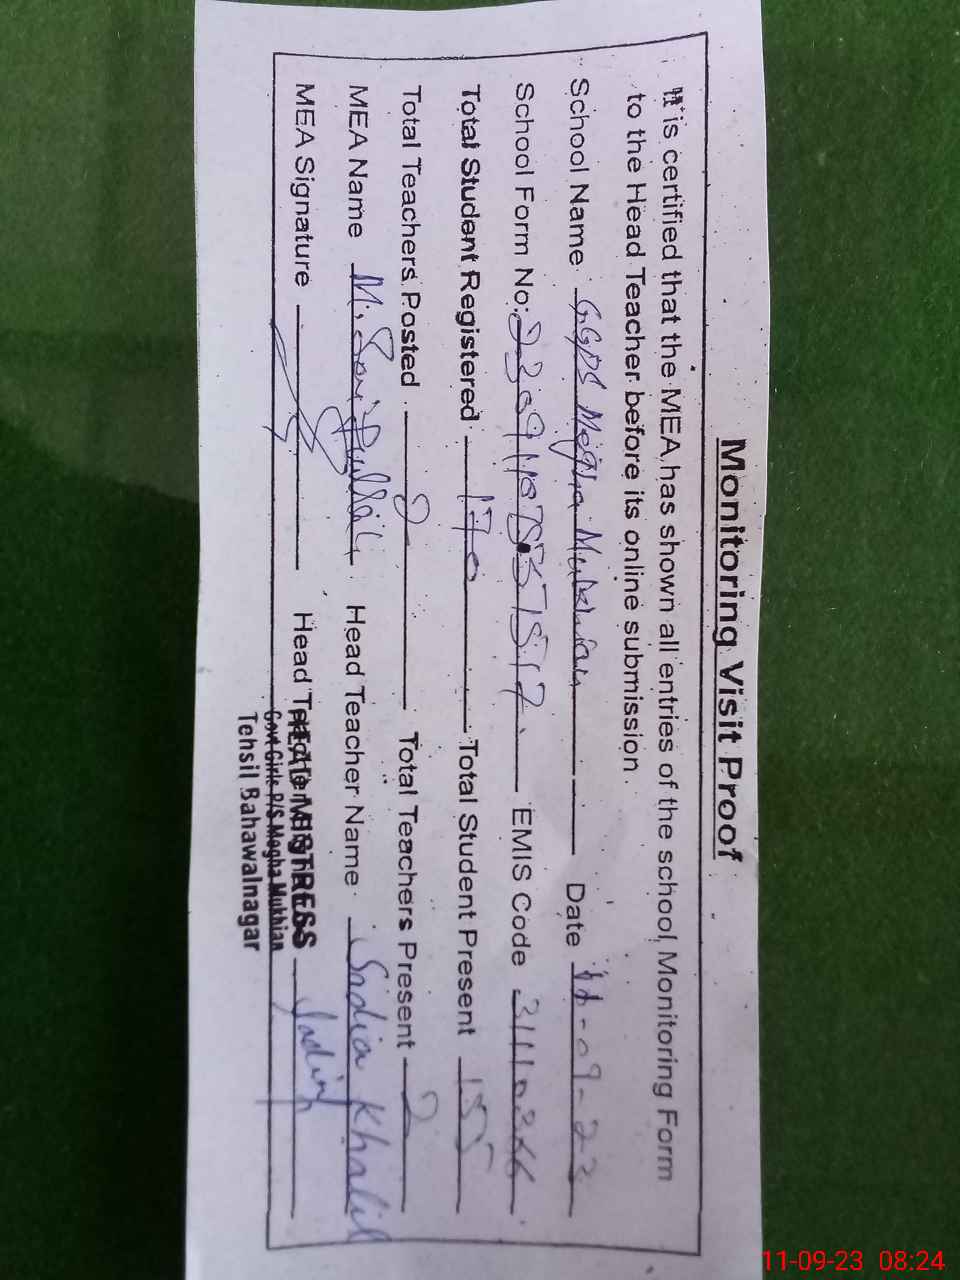 Monitoring Visit Proof
It is certified that the MEA has shown all entries of the school Monitoring Form
to the Head Teacher before its online submission.
School Name GGPS Megha Mukhian Date 11-09-23
School Form No: EMIS Code 31110366
Total Student Registered 170 Total Student Present 155
Total Teachers Posted 2 Total Teachers Present 2
MEA Name M. Head Teacher Name Sadia Khalil
MEA Signature Head Teacher Signature Sadia
HEAD MISTRESS
Govt Girls P/S Megha Mukhian
Tehsil Bahawalnagar
11-09-23 08:24